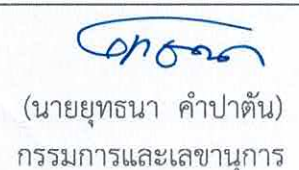 (นายยุทธนา คำปาตัน)
กรรมการและเลขานุการ